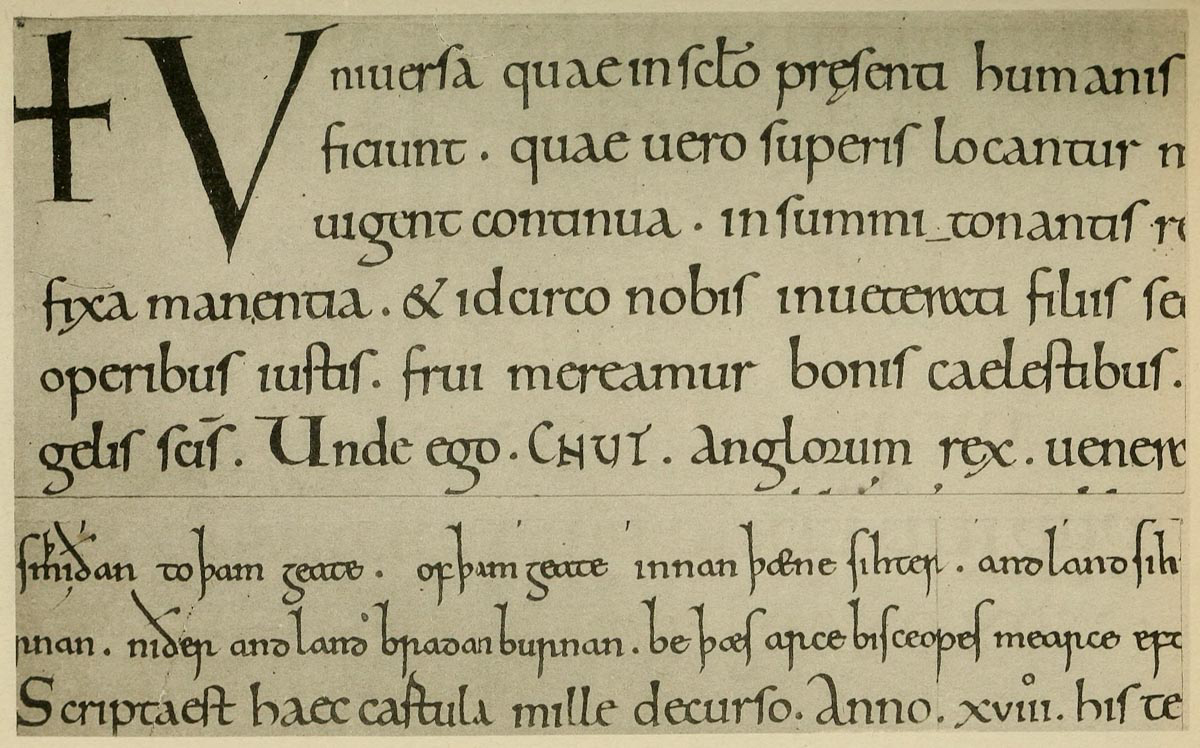 + Vniuersa quae in scło pręsenti humanis
ficiunt . quae uero superis locantur
uigent continua . in summi_tonantis
fixa manentia . & idcirco nobis inueterata filiis
operibus iustis . frui mereamur bonis caelestibus .
gelis scīs . Unde ego . CNUT . anglorum rex .
to þam geate . of þam geate innan þæne sihter . and lang
nnan . niðer and lang bradan burnan . be þæs arcebisceopes mearce
Scripta est haec castula mille decurso . Anno . xviii . bis